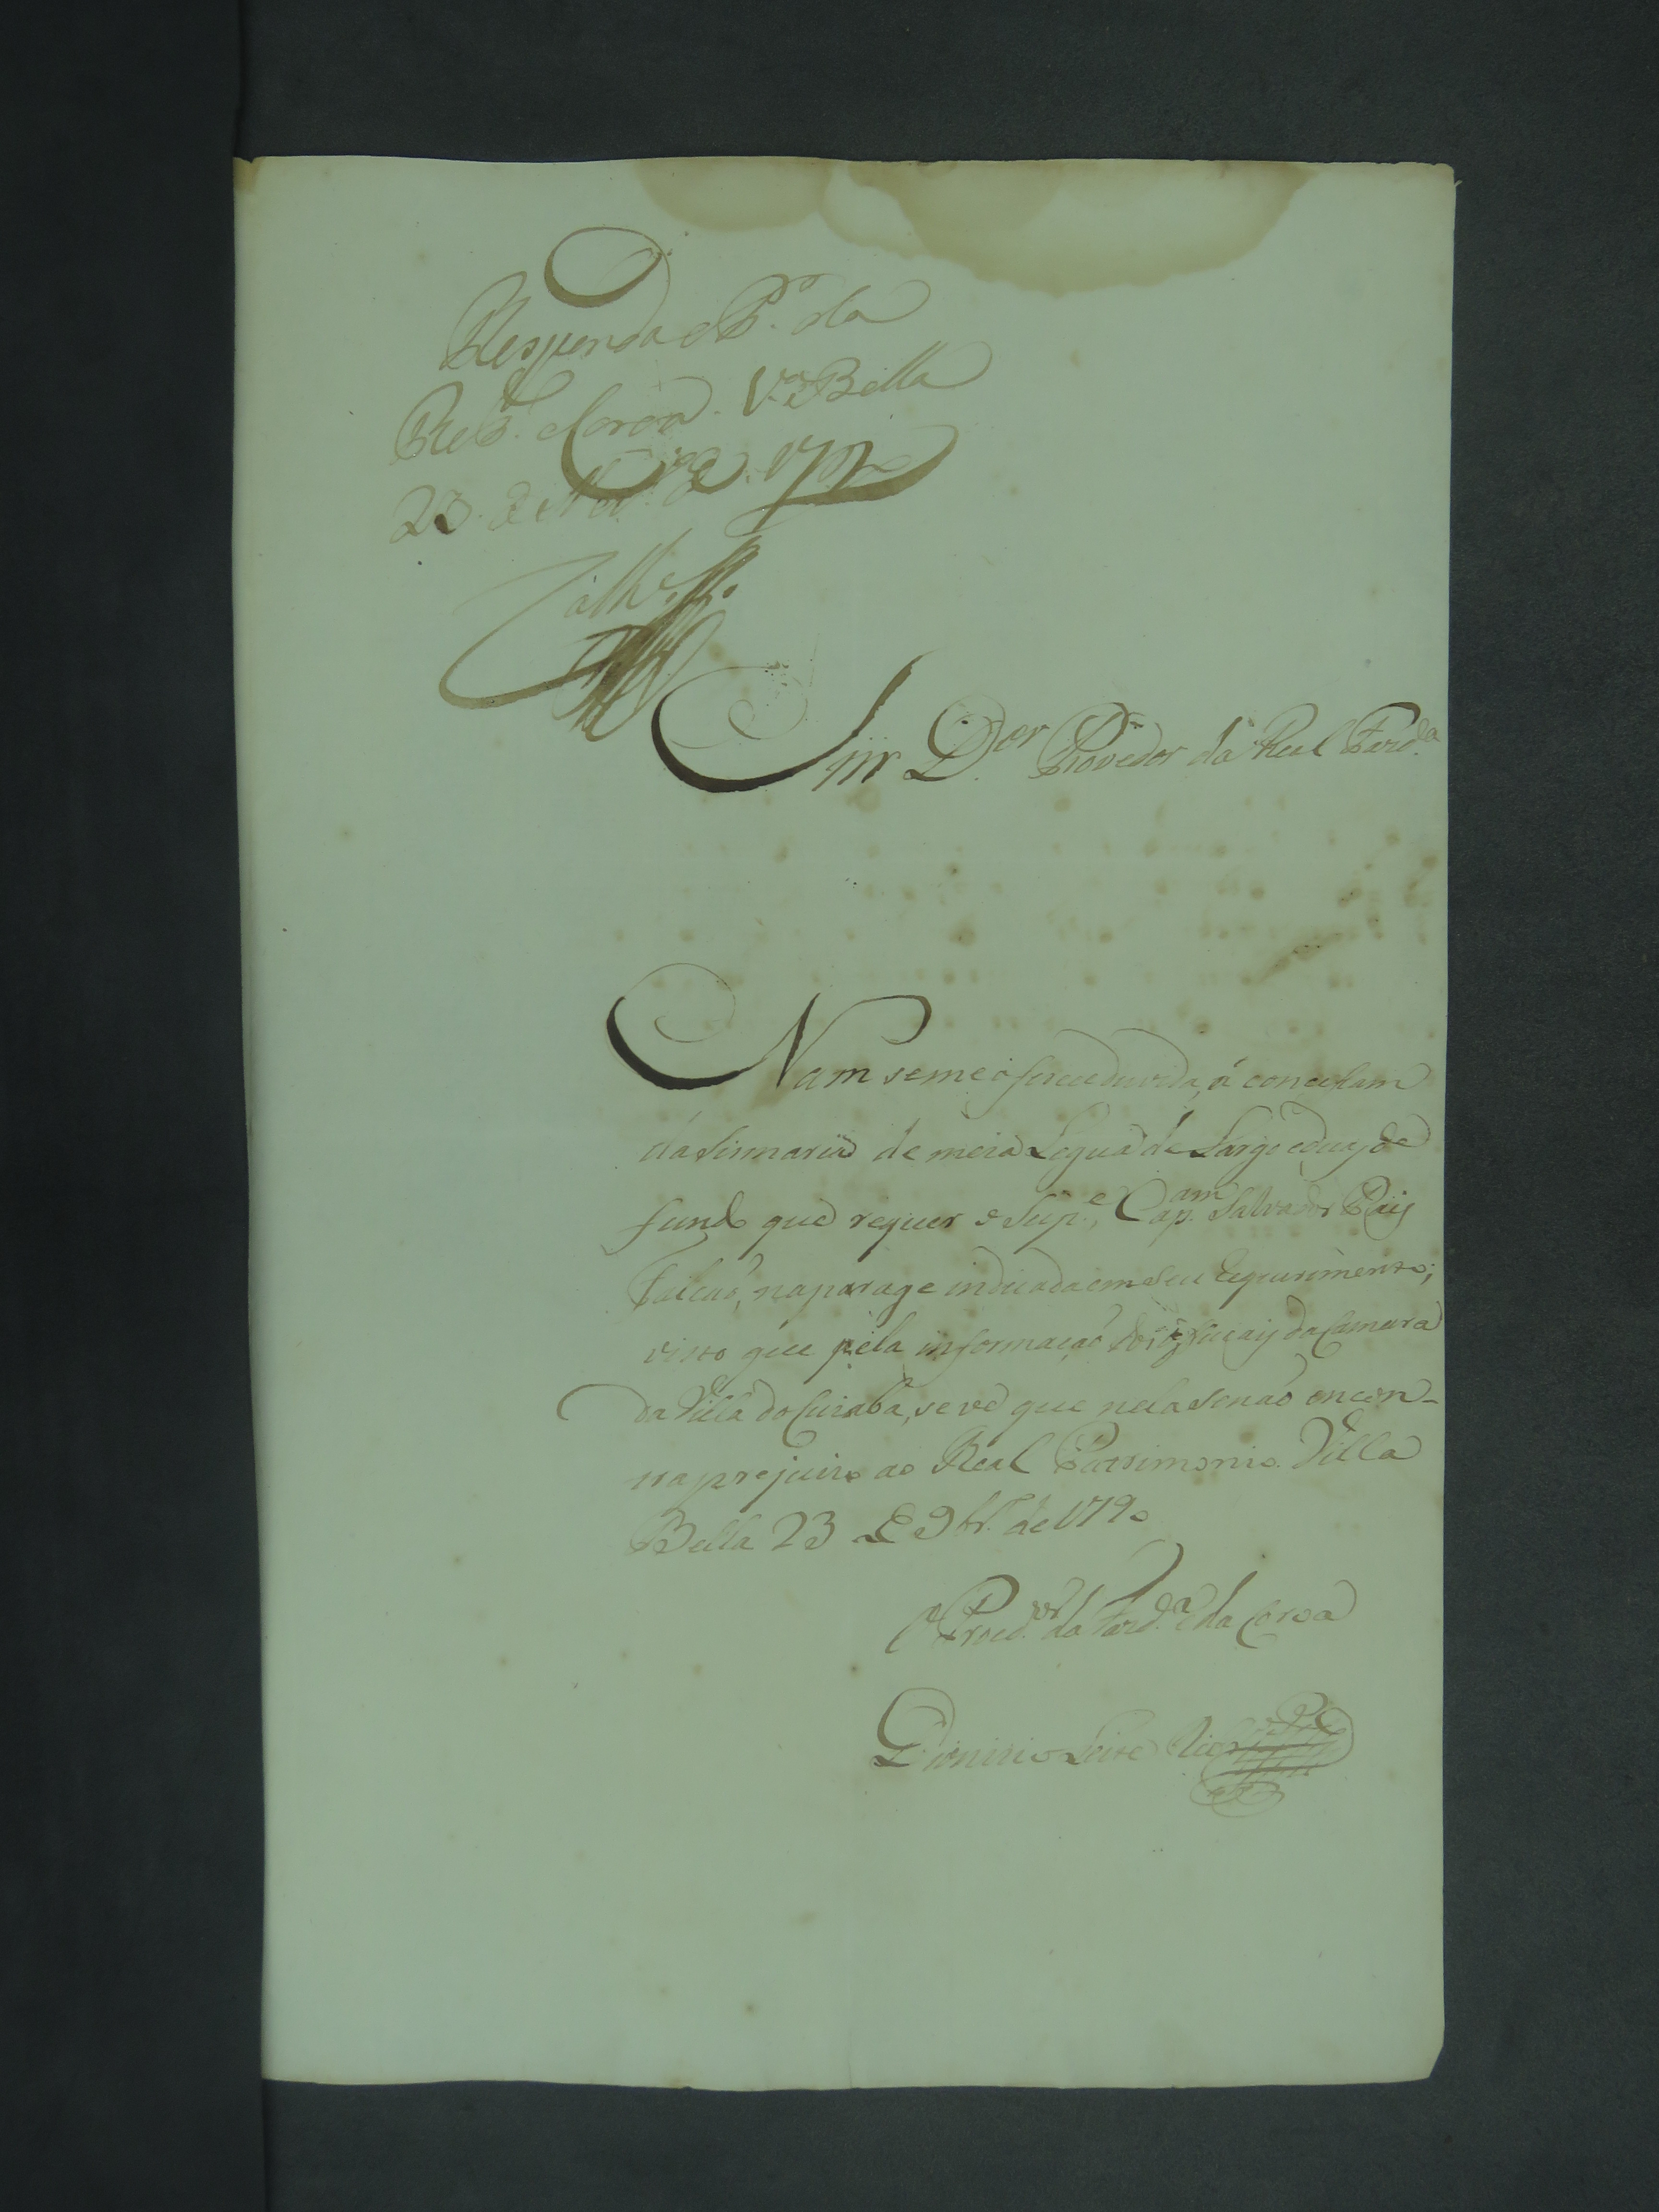 Responda o P.or da
Real Coroa. V.a Bella
23. de Nov.o de 1790
Snr D.or Provedor da Real Fazd.a
Nam se me oferece duvida, á concesam
da Sismaria de meia Legua de Largo e duas de
fundo que requer o Sup.e, Cap.am Salvador Paiz
Falcaó, na parage indicada em seu requerimento;
visto que pela informaçaó dos oficiais da Camara
da Villa do Cuiabá, se vê que nela se naó encon-
tra prejuizo ao Real Patrimonio. Villa
Bella 23 de 9br.o de 1790
O Proc.or da Fazd.a e da Coroa
Dionizio Leite